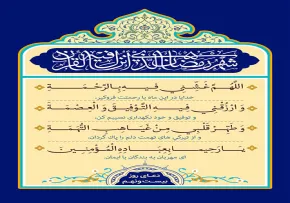 شهر رمضان الذی انزل فیه القرآن
اللَّهُمَّ غَشِّنِي فِيهِ بِالرَّحْمَةِ
خدایا در این ماه با رحمتت فروگیر
وَارْزُقْنِي فِيهِ التَّوْفِيقَ وَالْعِصْمَةَ
و توفیق و خود نگهداری نصیبم کن،
وَطَهِّرْ قَلْبِي مِنْ غَيَاهِبِ التُّهَمَةِ
و از تیرگی های تهمت دلم را پاک کن،
يَا رَحِيماً بِعِبَادِهِ الْمُؤْمِنِينَ
ای مهربان به بندگان با ایمان.
دعای روز
بیست و نهم